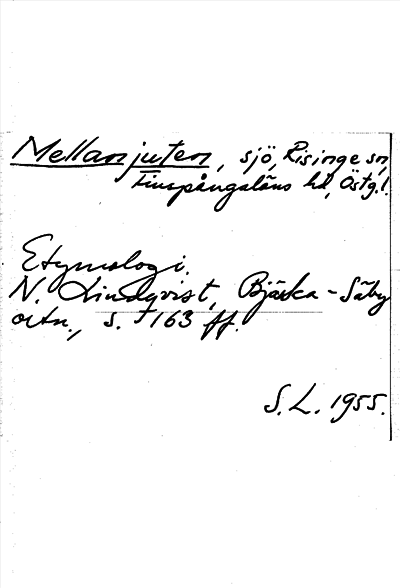 Mellanjuten, sjö, Risinge sn,
Finspångaläns hd, Östg.!
Etymologi.
N. Lindqvist, Bjärka-Säby
ortn., s. 163 ff.
S. L. 1955.